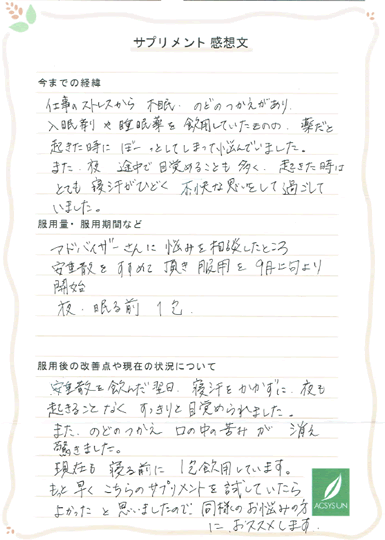 サプリメント 感想文
今までの経緯
仕事のストレスから 不眠. のどのつかえがあり.
入眠剤や睡眠薬を飲用していたものの. 薬だと
起きた時に ぼーっとしてしまって悩んでいました。
また. 夜 途中で目覚めることも多く. 起きた時は
とても 寝汗がひどく 不快な思いをして過ごして
いました。
服用量・服用期間など
アドバイザーさんに悩みを相談したところ
をすすめて頂き 服用を 9月に旬より
開始
夜. 眠る前 1包.
服用後の改善点や現在の状況について
を飲んだ翌日. 寝汗をかかずに. 夜も
起きることなく すっきりと目覚められました。
また. のどのつかえ 口の中の苦みが 消え
驚きました。
現在も 寝る前に 1包飲用しています。
もっと早く こちらのサプリメントを試していたら
よかったと思いましたので. 同様のお悩みの方
に おススメします.
AGSYSUN